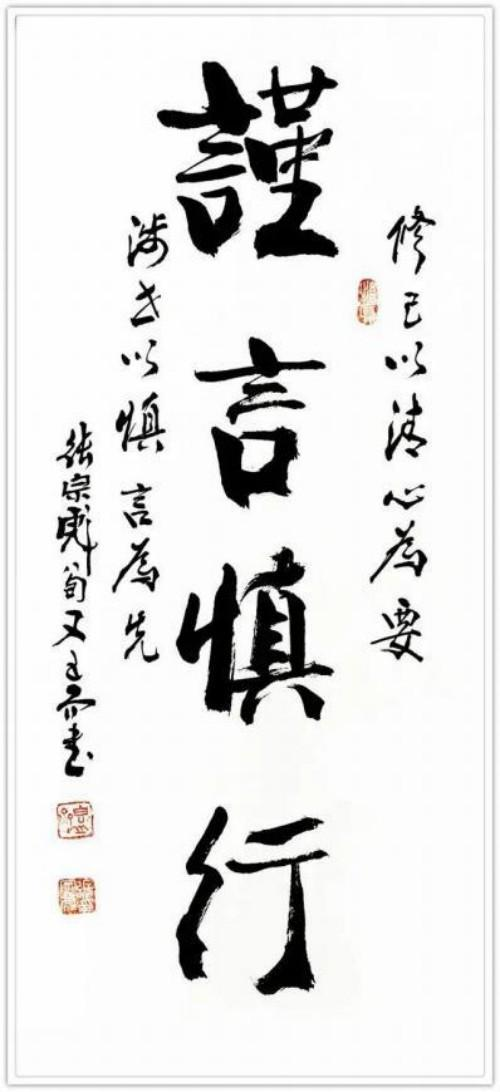 謹言慎行
修己以清心為要
涉世以慎言為先
張宗彪
書